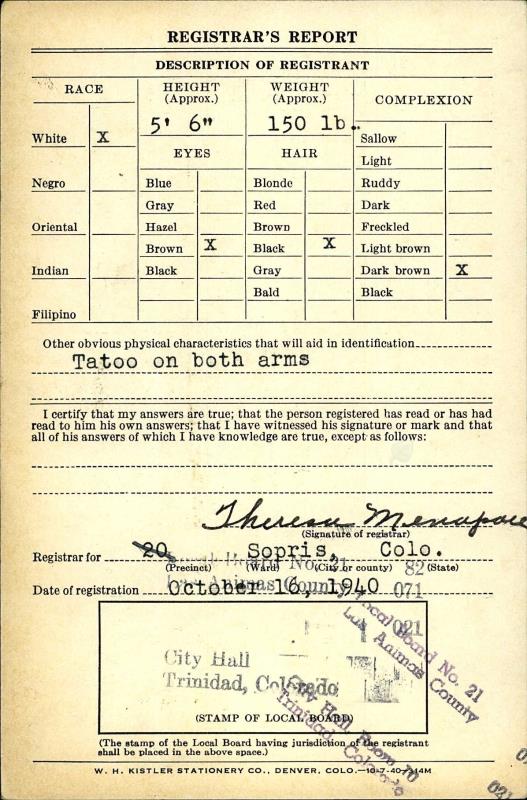 REGISTRAR'S REPORT
DESCRIPTION OF REGISTRANT
RACE
HEIGHT
(Approx.)
WEIGHT
(Approx.)
COMPLEXION
5' 6"
150 lb.
White X
EYES
HAIR
Sallow
Light
Negro
Blue
Blonde
Ruddy
Gray
Red
Dark
Oriental
Hazel
Brown
Freckled
Brown X
Black X
Light brown
Indian
Black
Gray
Dark brown X
Bald
Black
Filipino
Other obvious physical characteristics that will aid in identification
Tatoo on both arms
I certify that my answers are true; that the person registered has read or has had
read to him his own answers; that I have witnessed his signature or mark and that
all of his answers of which I have knowledge are true, except as follows:
Theresa Menapace
(Signature of registrar)
Registrar for 20 Sopris, Colo.
(Precinct) (Ward) (City or county) (State)
Local Board No. 21 82
Las Animas County 071
Date of registration October 16, 1940
021
City Hall
Trinidad, Colorado
Local Board No. 21
Las Animas County
City Hall Room 10
Trinidad Colorado
(STAMP OF LOCAL BOARD)
(The stamp of the Local Board having jurisdiction of the registrant
shall be placed in the above space.)
W. H. KISTLER STATIONERY CO., DENVER, COLO.—10-7-40-414M